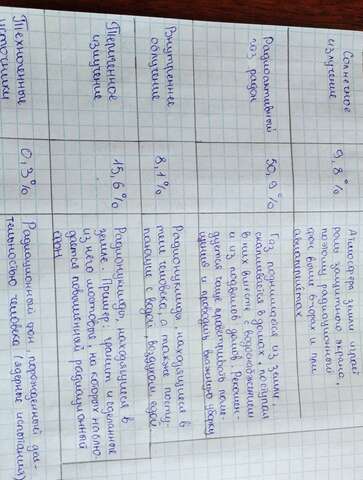 Солнечное
излучение
9,8%
Атмосфера земли играет
роль защитного экрана,
поэтому радиационного
фон выше в горах и при
авиаполётах
Радиоактивный
газ радон
50,9%
Газ поднимается из земли,
скапливается в домах, поступая
в них вместе с водоснабжением
и из подвалов домов. Рекомен-
дуется чаще проветривать поме-
щения и проводить влажную уборку
Внутреннее
облучение
8,1%
Радионуклиды, находящиеся в
теле человека, а также посту-
пающие с водой, воздухом, едой
Терригенное
излучение
15,6%
Радионуклиды находящиеся в
земле. Пример: гранит и сделанные
из него мостовые, на которых наблю-
дается повышенный радиационный
фон
Техногенные
источники
0,3%
Радиационный фон, порождённый дея-
тельностью человека (ядерные испытания)